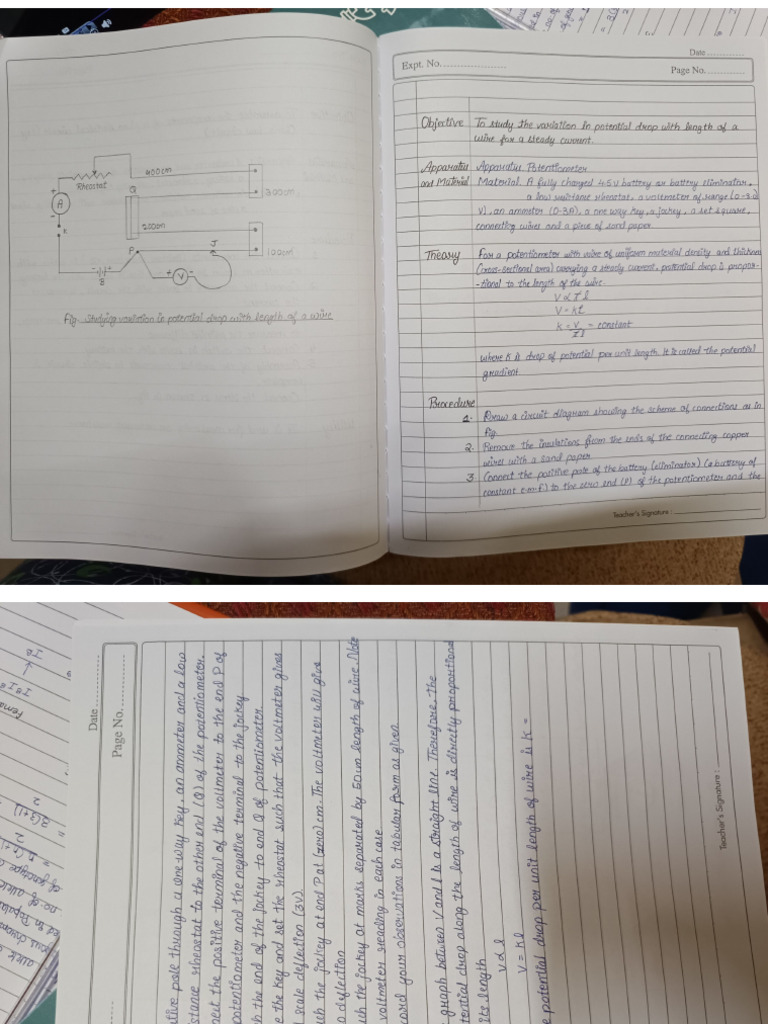 400cm
Rheostat
A
Q
300cm
200cm
P
J
100cm
B
V
Fig. Studying variation in potential drop with length of a wire
Date
Expt. No.
Page No.
Objective To study the variation in potential drop with length of a
wire for a steady current.
Apparatus Apparatus. Potentiometer
and Material Material. A fully charged 4.5V battery or battery eliminator,
a low resistance rheostat, a voltmeter of range (0-3.0
V), an ammeter (0-3A), a one way key, a jockey, a set square,
connecting wires and a piece of sand paper
Theory For a potentiometer with wire of uniform material density and thickness
(cross-sectional area) carrying a steady current, potential drop is propor-
-tional to the length of the wire.
V ∝ I l
V = Kl
k = V/Il = constant
where K is drop of potential per unit length. It is called the potential
gradient.
Procedure
1. Draw a circuit diagram showing the scheme of connections as in
fig.
2. Remove the insulations from the ends of the connecting copper
wires with a sand paper
3. Connect the positive pole of the battery (eliminator) (a battery of
constant e.m.f.) to the zero end (P) of the potentiometer and the
Teacher's Signature :
Date
Page No.
ative pole through a one way key an ammeter and a low
stance rheostat to the other end (Q) of the potentiometer.
nect the positive terminal of the voltmeter to the end P of
potentiometer and the negative terminal to the jockey
h the end of the jockey to end Q of potentiometer.
e the key and set the rheostat such that the voltmeter gives
l scale deflection (3V).
uch the jockey at end P at (zero) cm. The voltmeter will give
o deflection
uch the jockey at marks separated by 50cm length of wire. Note
voltmeter reading in each case
cord your observations in tabular form as given
graph between V and l is a straight line. Therefore, the
tential drop along the length of wire is directly proportional
its length
V ∝ l
V = Kl
e potential drop per unit length of wire is K =
Teacher's Signature :